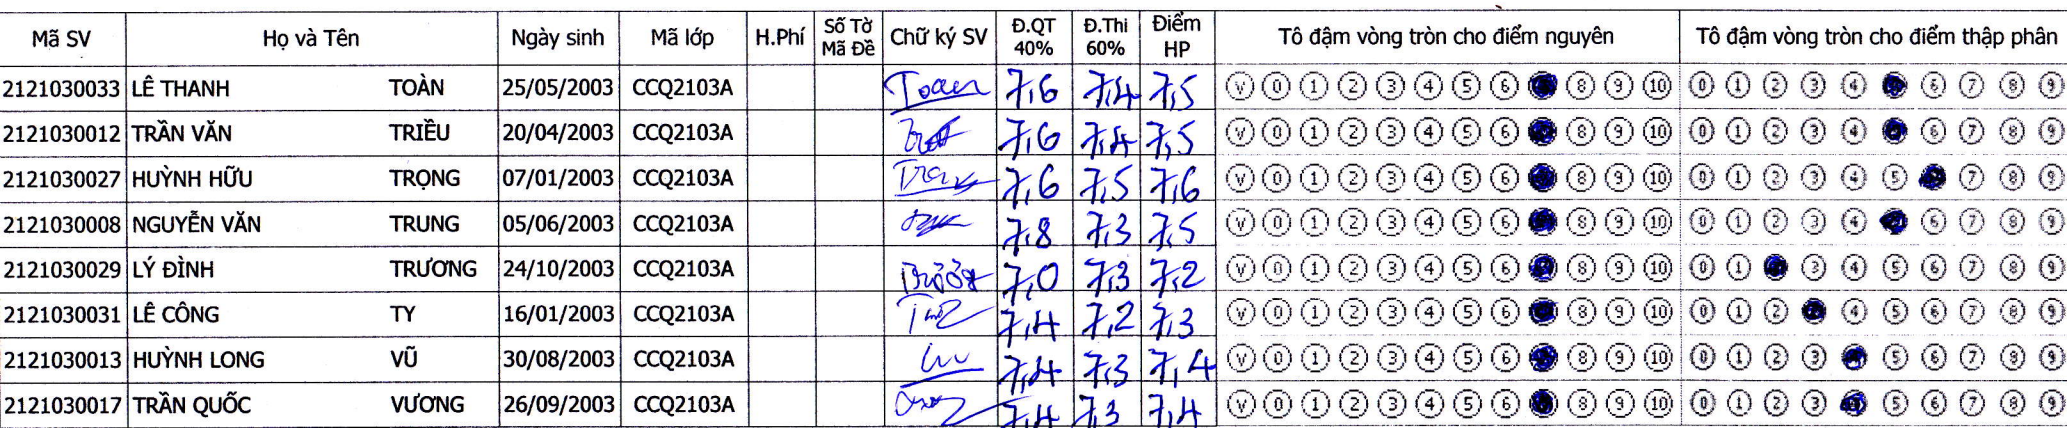 Mã SV Họ và Tên Ngày sinh Mã lớp H.Phí Số Tờ Mã Đề Chữ ký SV Đ.QT 40% Đ.Thi 60% Điểm HP Tô đậm vòng tròn cho điểm nguyên Tô đậm vòng tròn cho điểm thập phân
2121030033 LÊ THANH TOÀN 25/05/2003 CCQ2103A Toan 7,6 7,4 7,5 V 0 1 2 3 4 5 6 8 9 10 0 1 2 3 4 6 7 8 9
2121030012 TRẦN VĂN TRIỀU 20/04/2003 CCQ2103A 7,6 7,4 7,5 V 0 1 2 3 4 5 6 8 9 10 0 1 2 3 4 6 7 8 9
2121030027 HUỲNH HỮU TRỌNG 07/01/2003 CCQ2103A 7,6 7,5 7,6 V 0 1 2 3 4 5 6 8 9 10 0 1 2 3 4 5 7 8 9
2121030008 NGUYỄN VĂN TRUNG 05/06/2003 CCQ2103A 7,8 7,3 7,5 V 0 1 2 3 4 5 6 8 9 10 0 1 2 3 4 6 7 8 9
2121030029 LÝ ĐÌNH TRƯƠNG 24/10/2003 CCQ2103A 7,0 7,3 7,2 V 0 1 2 3 4 5 6 8 9 10 0 1 3 4 5 6 7 8 9
2121030031 LÊ CÔNG TY 16/01/2003 CCQ2103A 7,4 7,2 7,3 V 0 1 2 3 4 5 6 8 9 10 0 1 2 4 5 6 7 8 9
2121030013 HUỲNH LONG VŨ 30/08/2003 CCQ2103A 7,4 7,3 7,4 V 0 1 2 3 4 5 6 8 9 10 0 1 2 3 5 6 7 8 9
2121030017 TRẦN QUỐC VƯƠNG 26/09/2003 CCQ2103A 7,4 7,3 7,4 V 0 1 2 3 4 5 6 8 9 10 0 1 2 3 5 6 7 8 9